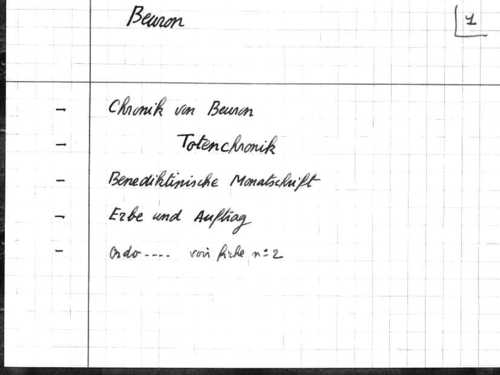 Beuron
1
- Chronik von Beuron
- Totenchronik
- Benediktinische Monatschrift
- Erbe und Auftrag
- Ordo .... voir fiche n° 2